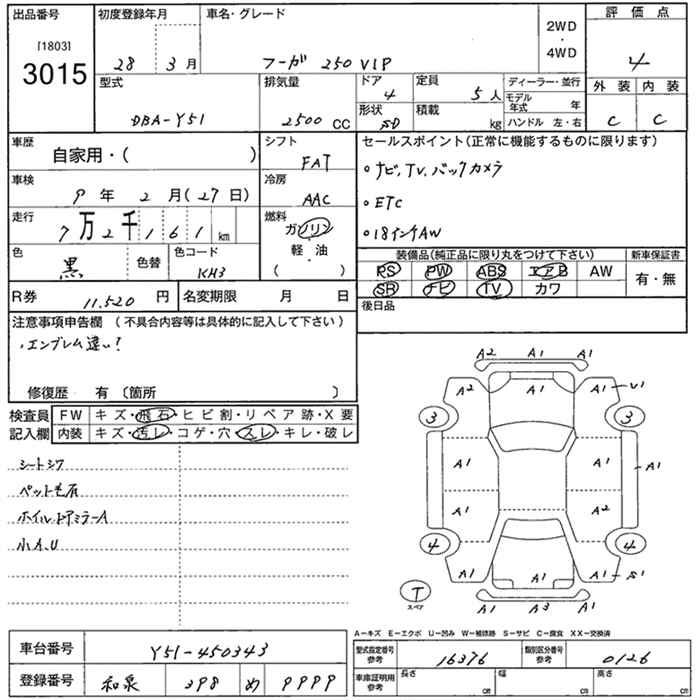 出品番号
[1803]
3015
初度登録年月
28 3月
車名・グレード
フーガ 250 VIP
2WD
・
4WD
評価点
4
型式
DBA-Y51
排気量
2500 CC
ドア
4
形状
SD
定員
5人
積載
kg
ディーラー・並行
モデル年式 年
ハンドル 左・右
外装 内装
C C
車歴
自家用・( )
シフト
FAT
セールスポイント(正常に機能するものに限ります)
・ナビ,TV,バックカメラ
・ETC
・18インチAW
車検
9年 2月(27日)
冷房
AAC
走行
7万2千161km
燃料
ガソリン
軽・油
( )
色
黒
色替
色コード
KH3
装備品(純正品に限り丸をつけて下さい)
PS PW ABS エアB AW
SR ナビ TV カワ
新車保証書
有・無
R券
11,520円
名変期限 月 日
後日品
注意事項申告欄 (不具合内容等は具体的に記入して下さい)
・エンブレム違い?
修復歴 有〔箇所 〕
検査員記入欄
FW キズ・飛石・ヒビ割・リペア跡・X要
内装 キズ・汚レ・コゲ・穴・スレ・キレ・破レ
シートシワ
ペット毛有
ホイル,ドアミラーA
小A,U
A2 A1 A1
A2 A1 A1 U1
3 3
A1 A1 A1
A1 A2
4 4
A1 A1 A1 S1
A1 A3 A1
T
スペア
A－キズ E－エクボ U－凹み W－補修跡 S－サビ C－腐食 XX－交換済
車台番号
Y51-450343
登録番号
和泉 398 め 9999
型式指定番号
参考
16376
類別区分番号
参考
0126
車庫証明用
参考
長さ cm
幅 cm
高さ cm